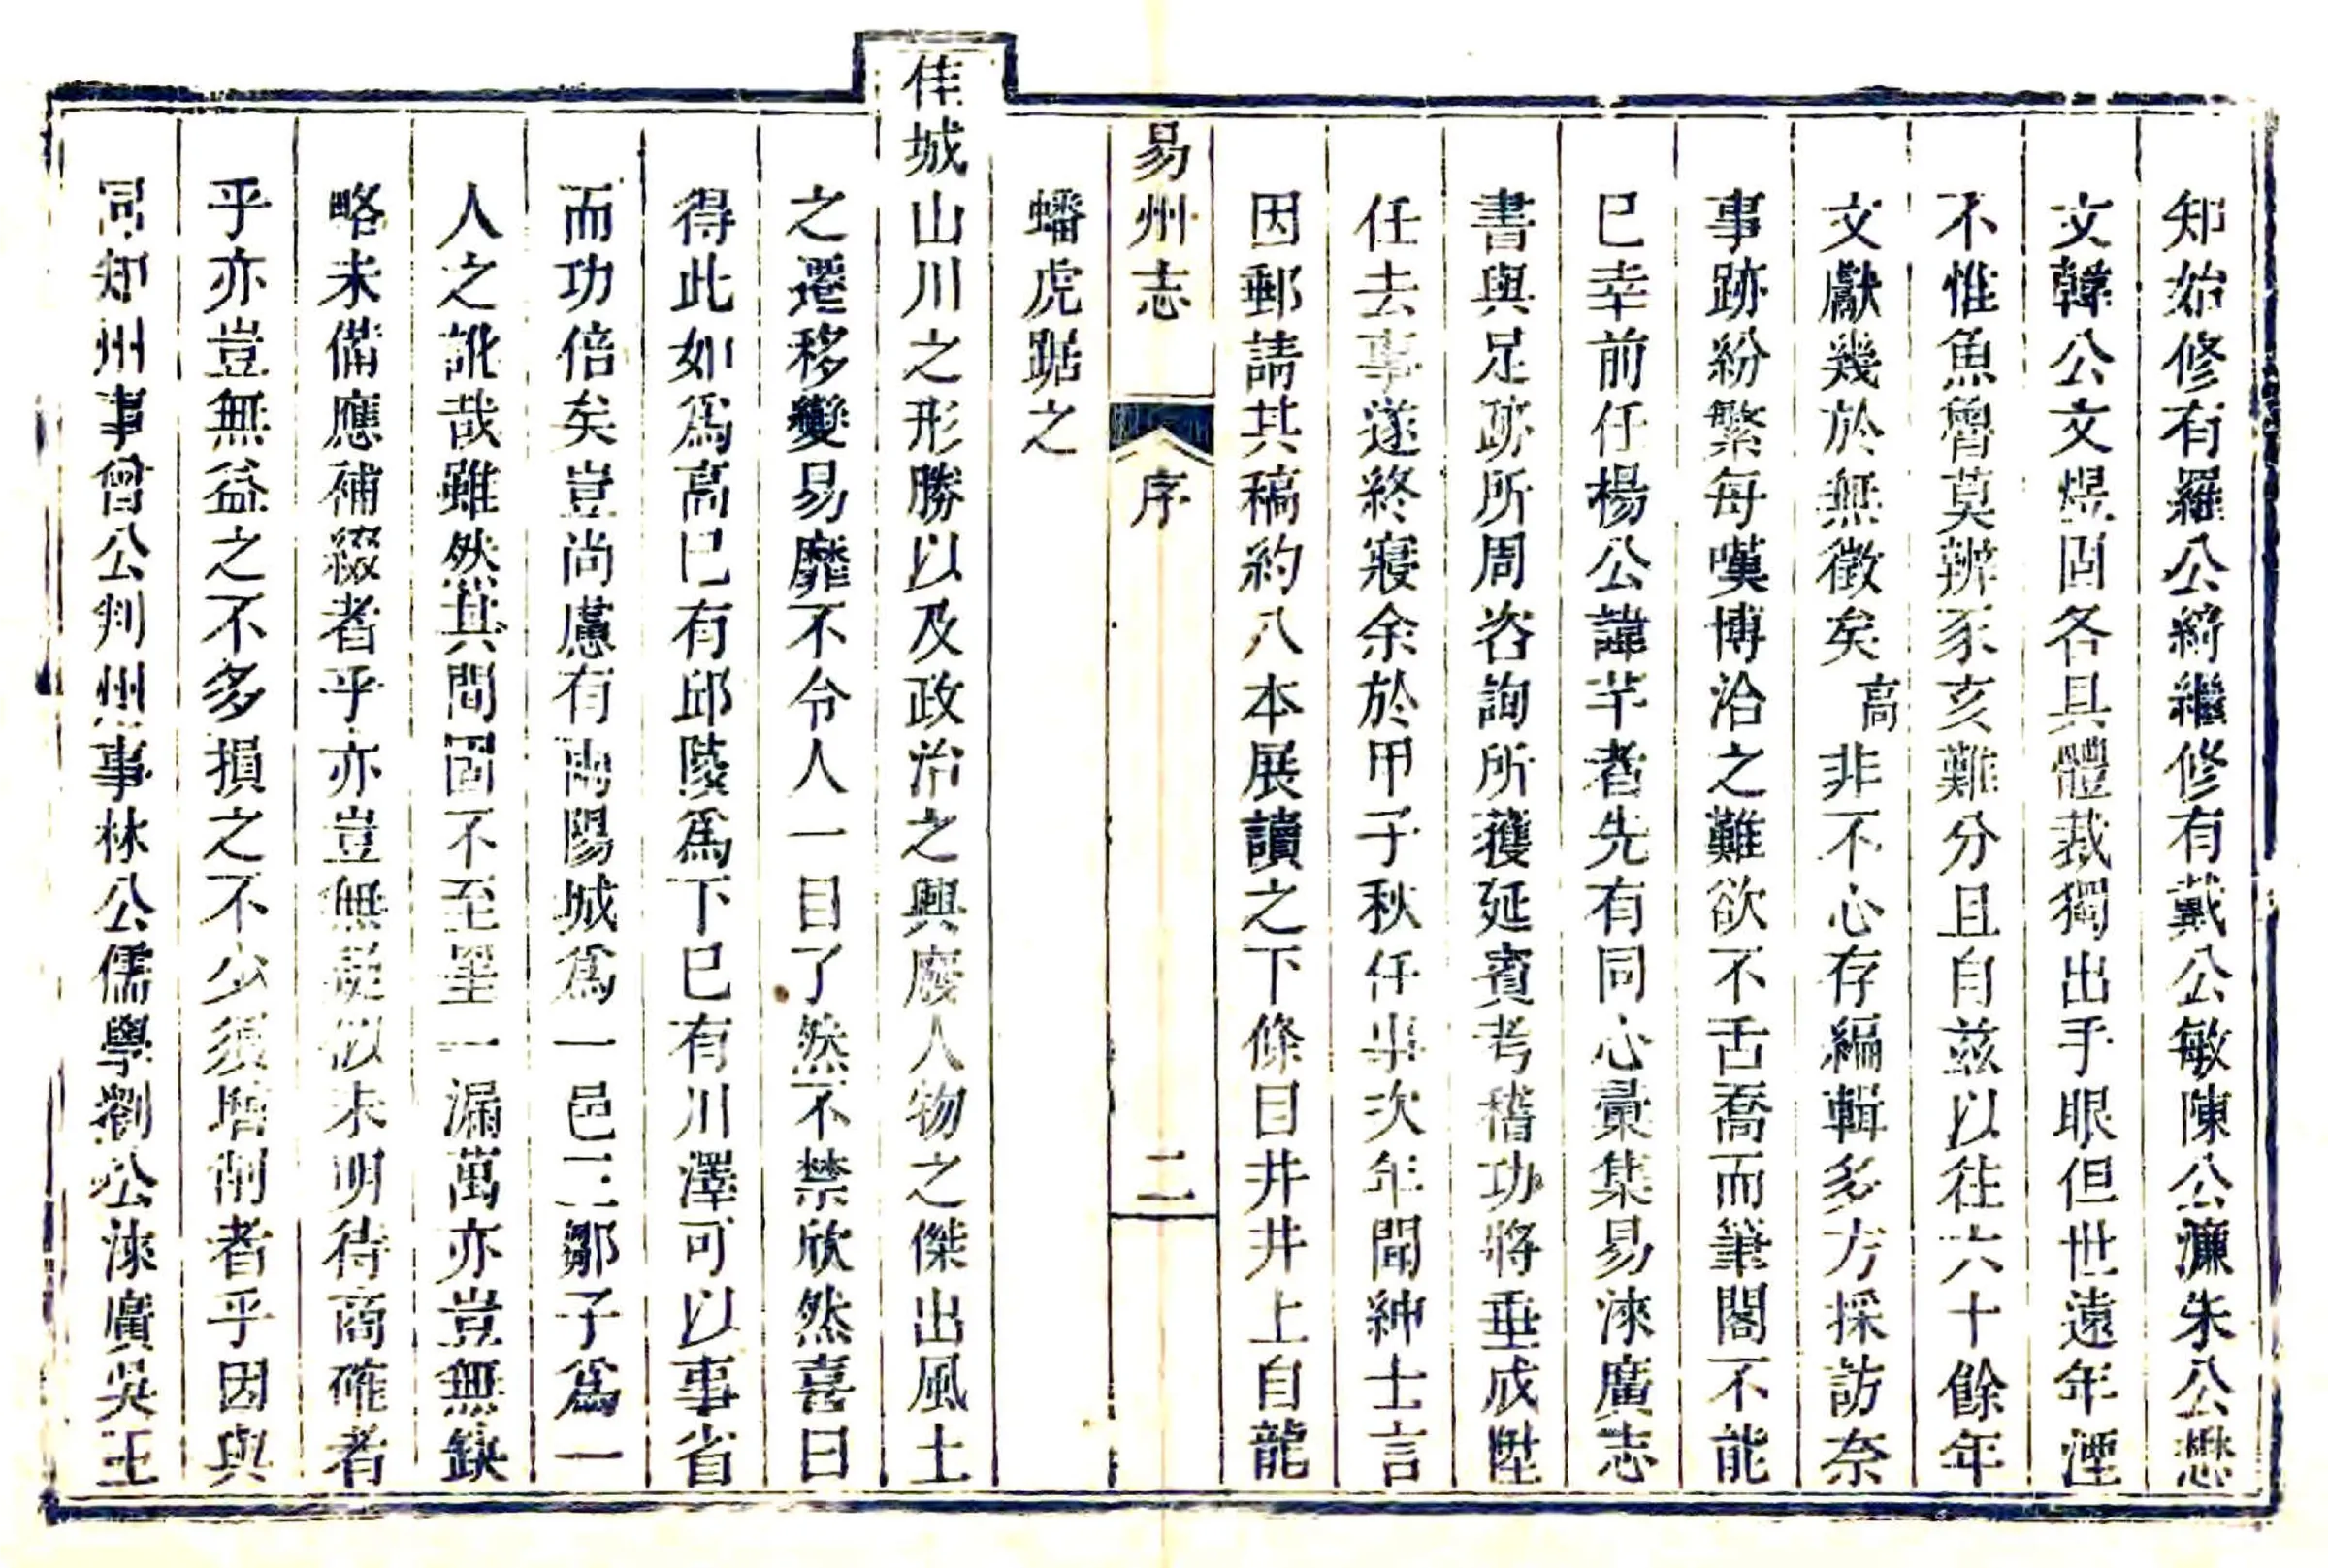 知始修有羅公綺繼修有戴公敏陳公濂朱公懋
文韓公文煜固各具體裁獨出手眼但世遠年湮
不惟魚魯莫辨豕亥難分且自茲以往六十餘年
文獻幾於無徵矣高非不心存編輯多方採訪奈
事跡紛繁每嘆博洽之難欲不舌喬而筆閣不能
已幸前任楊公諱芊者先有同心彙集易淶廣志
書與足跡所周咨詢所獲延賓考稽功將垂成陞
任去事遂終寢余於甲子秋任事次年聞紳士言
因郵請其稿約八本展讀之下條目井井上自龍
易州志 序 二
蟠虎踞之
佳城山川之形勝以及政治之興廢人物之傑出風土
之遷移變易靡不令人一目了然不禁欣然喜曰
得此如為高已有邱陵為下已有川澤可以事省
而功倍矣豈尚慮有兩陽城為一邑三鄒子為一
人之訛哉雖然其間固不至墨一漏萬亦豈無缺
略未備應補綴者乎亦豈無疑似未明待商確者
乎亦豈無益之不多損之不少須增削者乎因與
同知州事曾公判州事林公儒學劉公淶廣吳王